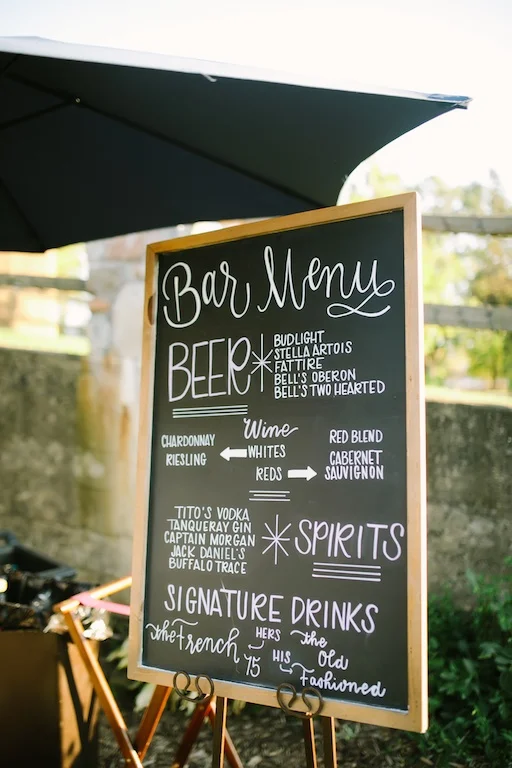 Bar Menu
BEER
BUDLIGHT
STELLA ARTOIS
FATTIRE
BELL'S OBERON
BELL'S TWO HEARTED
Wine
CHARDONNAY
RIESLING
WHITES
REDS
RED BLEND
CABERNET
SAUVIGNON
TITO'S VODKA
TANQUERAY GIN
CAPTAIN MORGAN
JACK DANIEL'S
BUFFALO TRACE
SPIRITS
SIGNATURE DRINKS
the French
75
HERS
HIS
the
Old
Fashioned